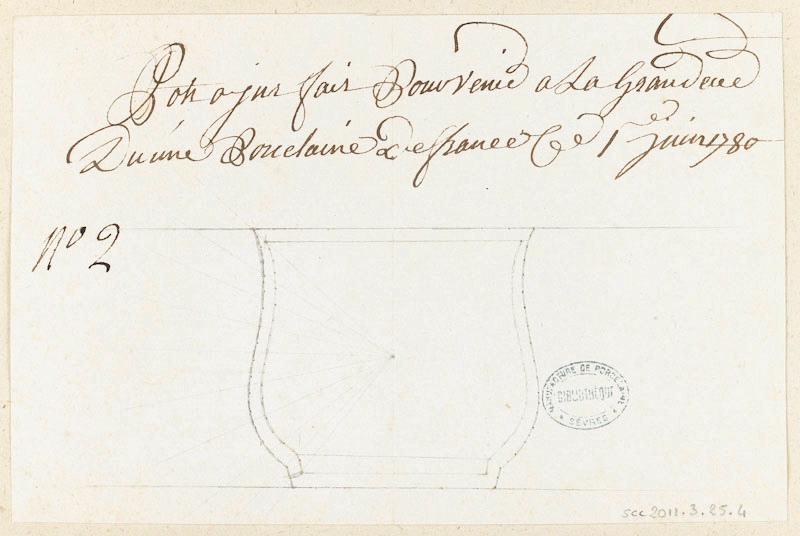 Pot a jus fair Souvenir a La Grandeur
Du'une Porcelaine De france Ce 1er Juin 1780
No 2
MANUFACTURE DE PORCELAINE
BIBLIOTHÈQUE
* SÈVRES *
SCC 2011.3.25.4